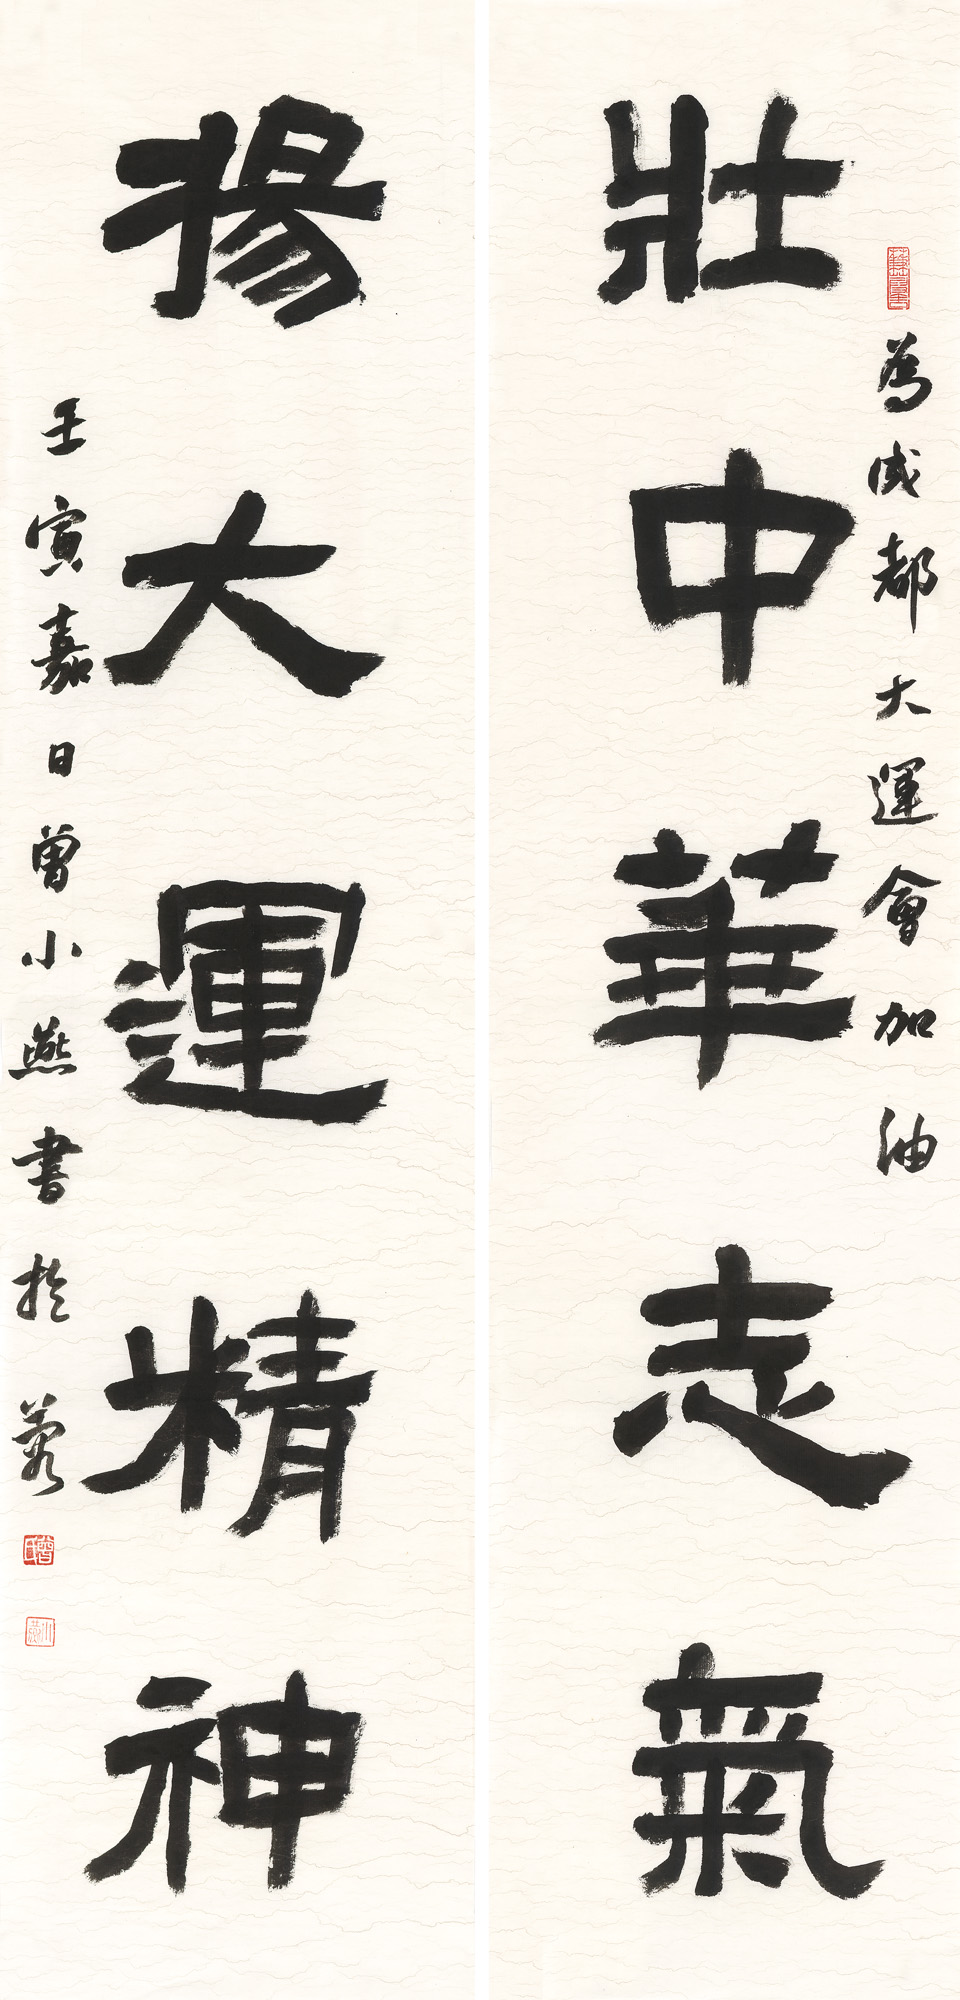 為成都大運會加油
壯中華志氣
揚大運精神
壬寅嘉日曾小燕書於蓉